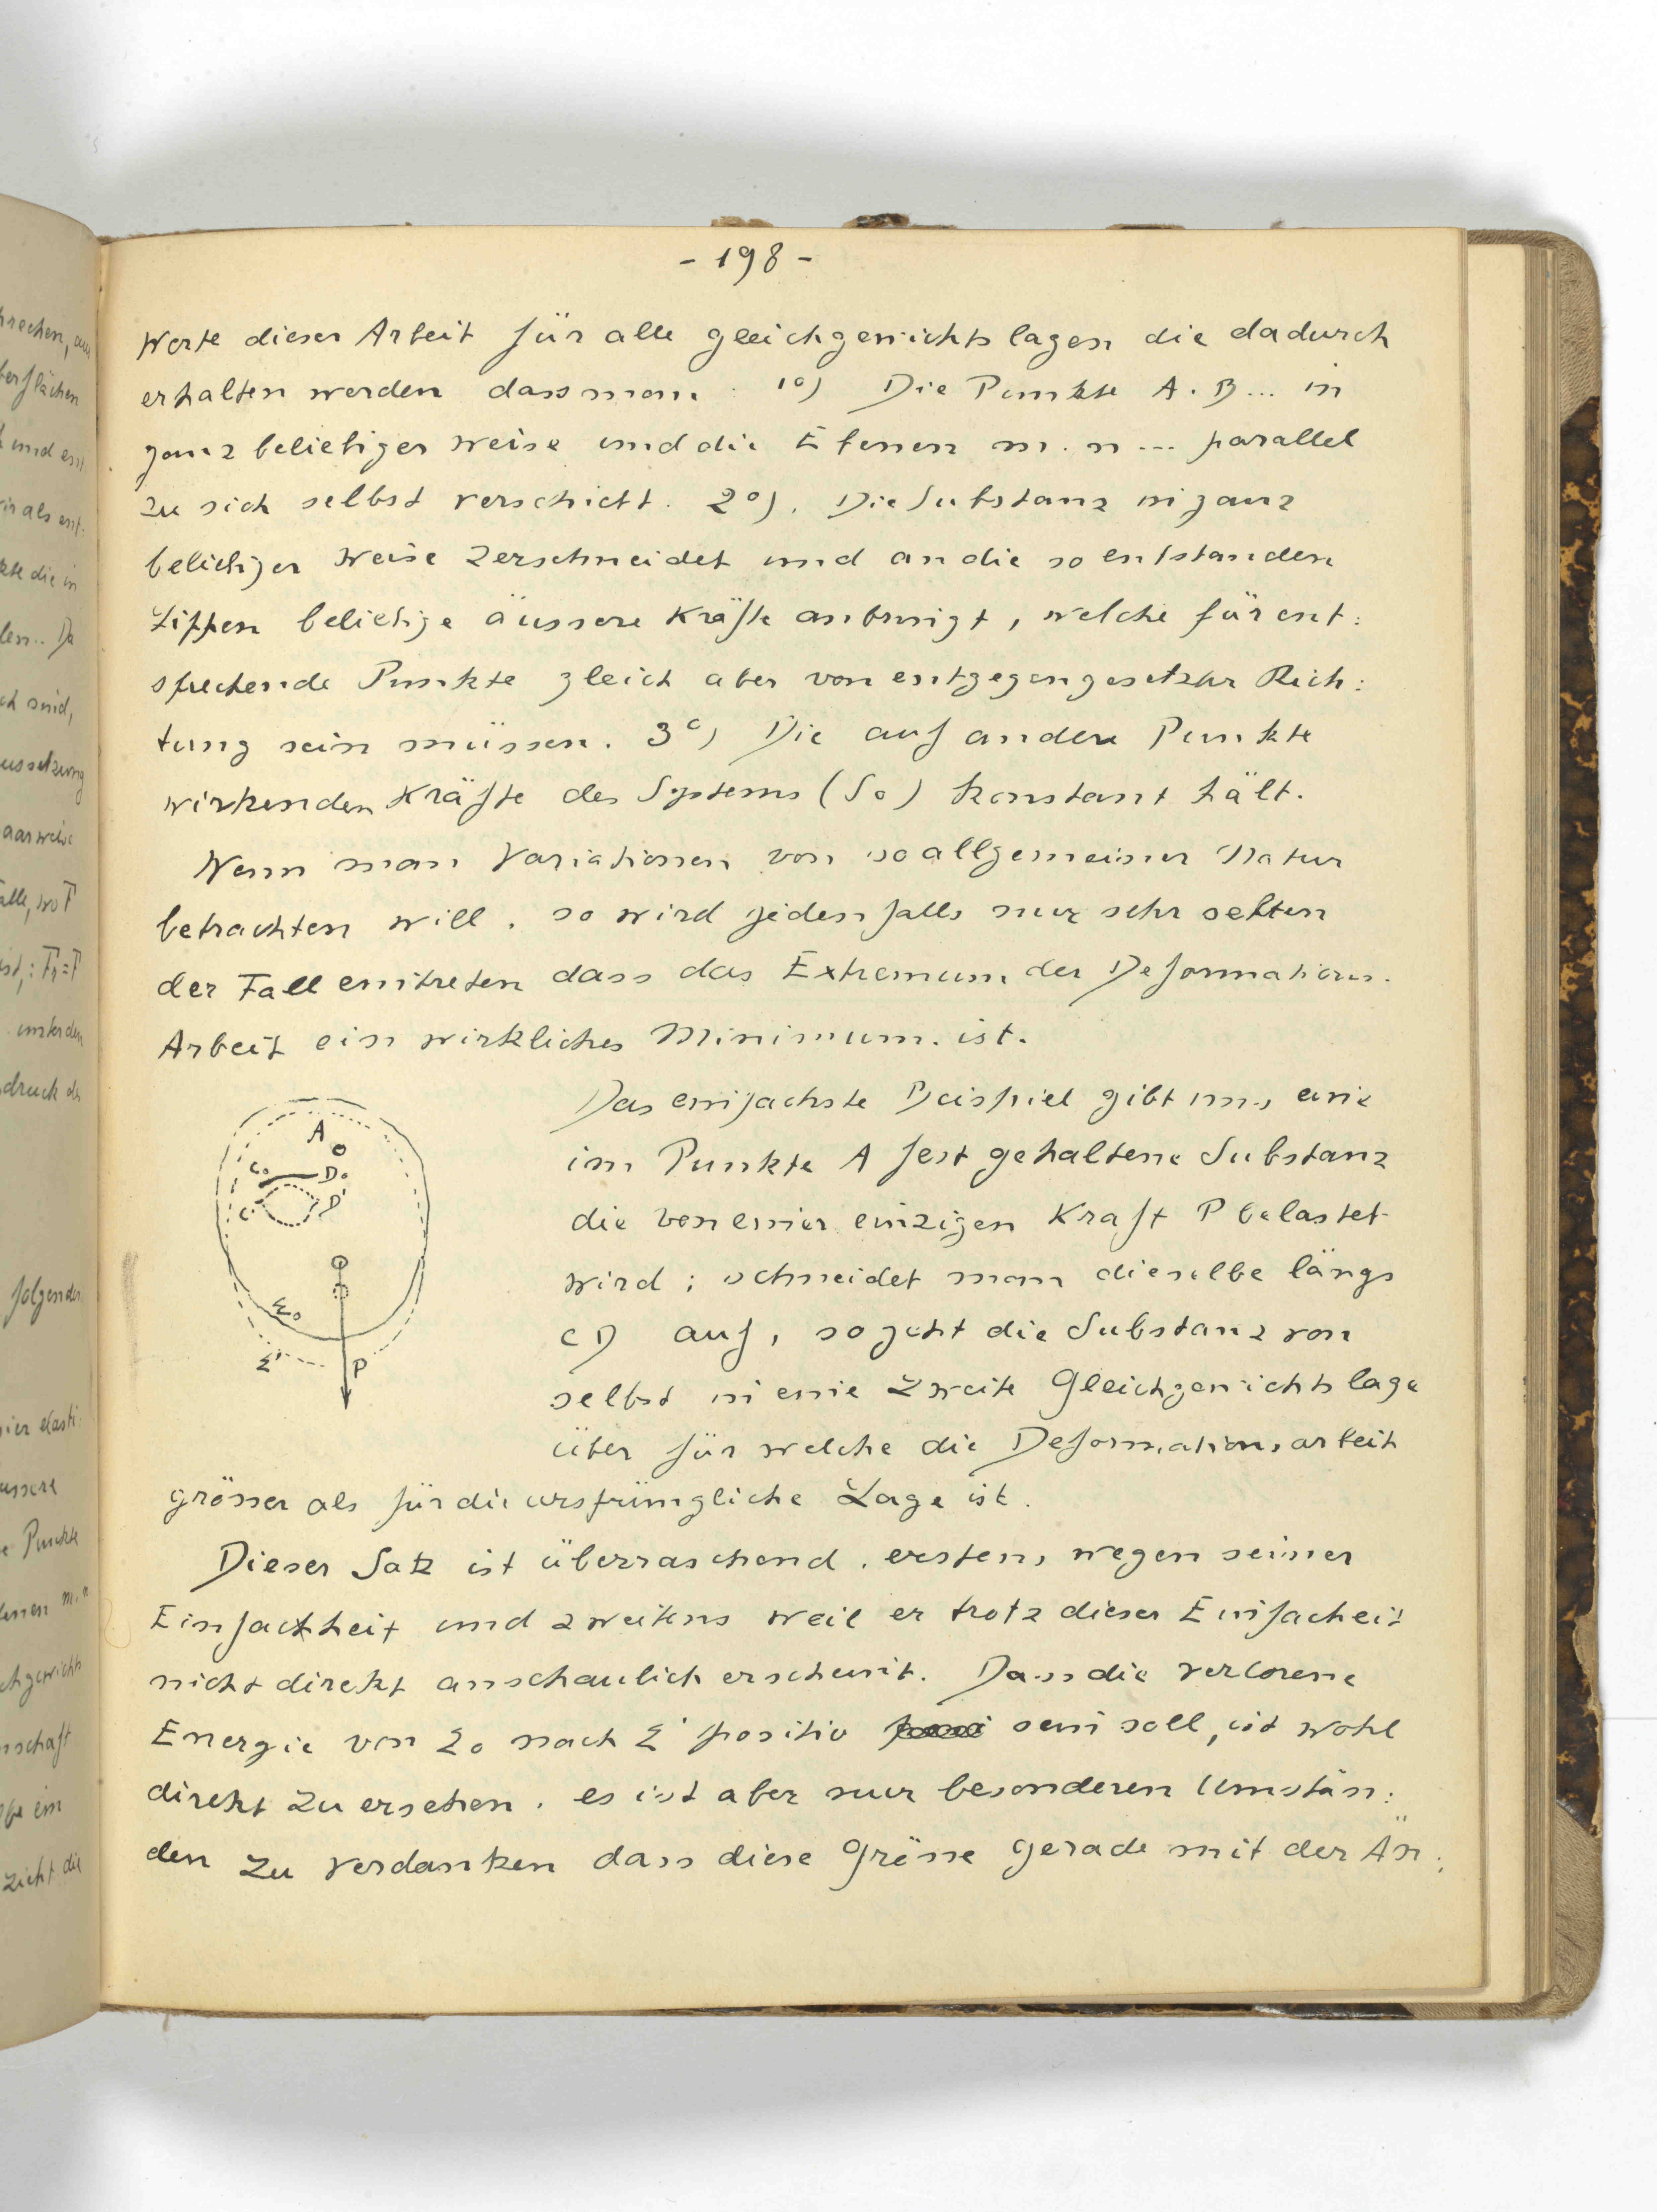 - 198 -
Werte dieser Arbeit für alle gleichgewichtslagen die dadurch
erhalten werden dass man : 1°) Die Punkte A. B... in
ganz beliebiger Weise und die Ebenen m. n... parallel
zu sich selbst verschiebt. 2°). Die Substanz in ganz
beliebiger Weise zerschneidet und an die so entstanden
Lippen beliebige äussere Kräfte anbringt, welche für ent:
sprechende Punkte gleich aber von entgegengesetzter Rich:
tung sein müssen. 3°) Die auf andere Punkte
wirkenden Kräfte des Systems (S₀) konstant hält.
Wenn man Variationen von so allgemeiner Natur
betrachten will, so wird jedenfalls nur sehr selten
der Fall eintreten dass das Extremum der Deformations.
Arbeit ein wirkliches Minimum ist.
Das einfachste Beispiel gibt uns eine
im Punkte A fest gehaltene Substanz
die von einer einzigen Kraft P belastet
wird ; schneidet man dieselbe längs
CD auf, so geht die Substanz von
selbst in eine zweite Gleichgewichtslage
über für welche die Deformationsarbeit
grösser als für die ursprüngliche Lage ist.
A
C₀ D₀
C' D'
Σ₀
Σ' P
Dieser Satz ist überraschend, erstens wegen seiner
Einfachheit und zweitens weil er trotz dieser Einfacheit
nicht direkt anschaulich erscheint. Dass die verlorene
Energie von Σ₀ nach Σ' positiv sein soll, ist wohl
direkt zu ersehen, es ist aber nur besonderen Umstän:
den zu verdanken dass diese Grösse gerade mit der Än: